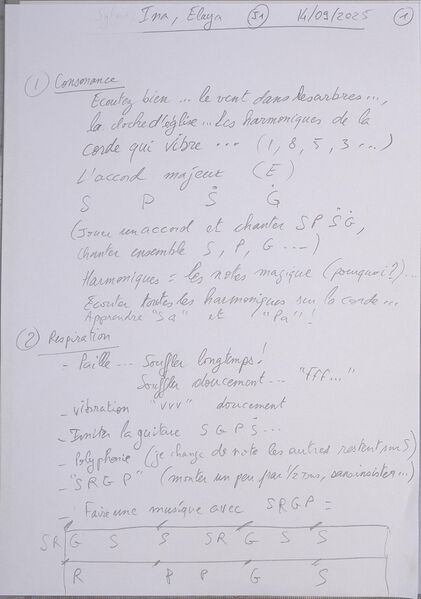 Ina, Elaya (J1) 14/09/2025 (1)
(1) Consonance
Ecoutez bien... le vent dans les arbres...,
la cloche d'église... Les harmoniques de la
corde qui vibre ... (1, 8, 5, 3 ...)
L'accord majeur (E)
S P Ṡ Ġ
(Jouer un accord et chanter S P Ṡ Ġ,
chanter ensemble S, P, G ....)
Harmoniques = les notes magique (pourquoi?)...
Ecouter toutes les harmoniques sur la corde...
Apprendre "Sa" et "Pa"!
(2) Respiration
- Paille ... Souffler longtemps!
Souffler doucement... "fff..."
- vibration "vvv" doucement
- Imiter la guitare S G P Ṡ...
- Polyphonie (je change de note les autres restent sur S)
- "S R G P" (monter un peu par 1/2 tons, sans insister...)
- Faire une musique avec S R G P =
SR G S S SR G S S
R P P G S